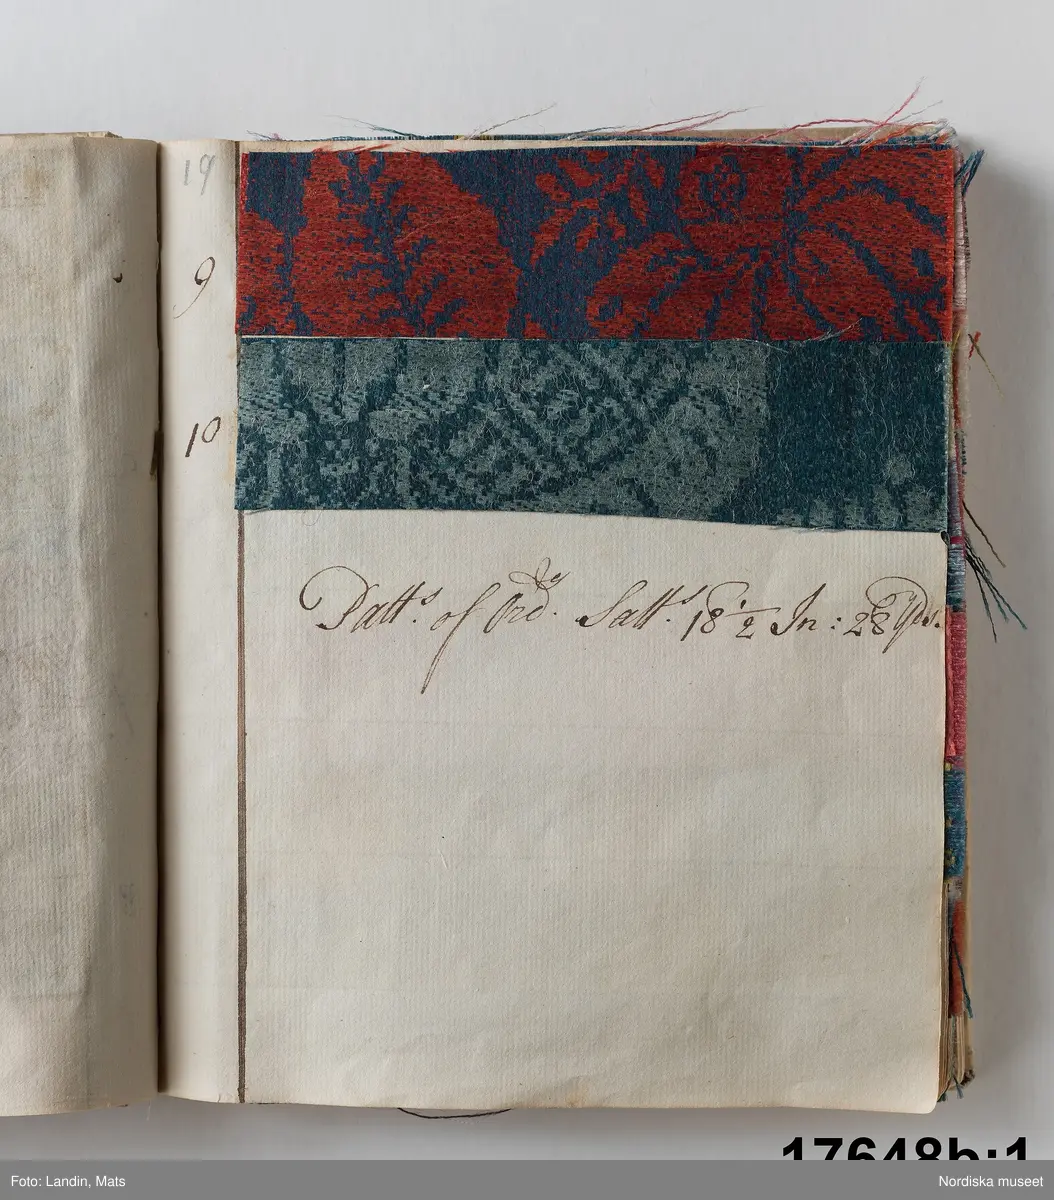 19
9
10
Patts. of Ordy. Satts. 18 1/2 In: 28 Yds.
17648b:1
Foto: Landin, Mats
Nordiska museet